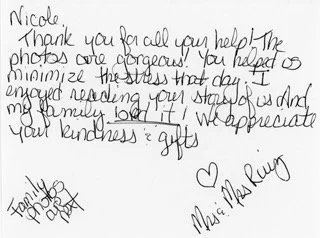 Nicole,
Thank you for all your help! The
photos are gorgeous. You helped us
minimize the stress that day. I
enjoyed reading your story of us And
my family loved it! We appreciate
your kindness & gifts
♡ Mr & Mrs
Family
photos